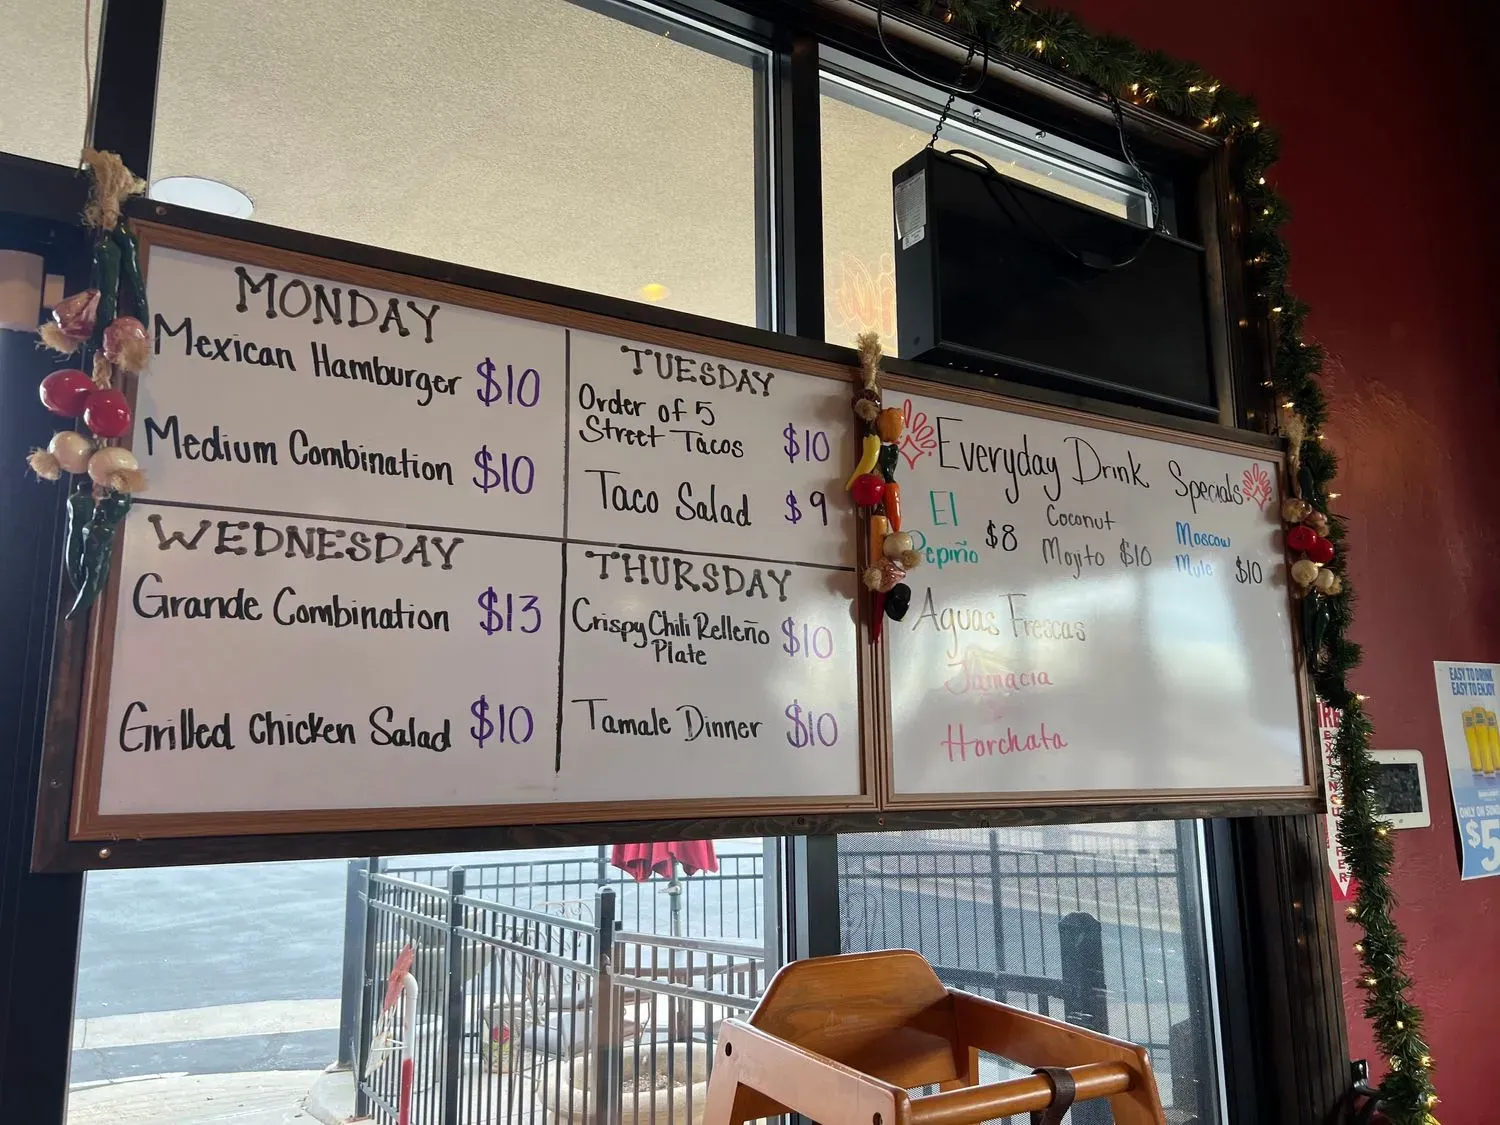 MONDAY
Mexican Hamburger $10
Medium Combination $10
TUESDAY
Order of 5
Street Tacos $10
Taco Salad $9
WEDNESDAY
Grande Combination $13
Grilled Chicken Salad $10
THURSDAY
Crispy Chili Relleño $10
Plate
Tamale Dinner $10
Everyday Drink Specials
El
Pepiño $8
Coconut
Mojito $10
Moscow
Mule $10
Aguas Frescas
Jamacia
Horchata
EASY TO DRINK
EASY TO ENJOY
$5